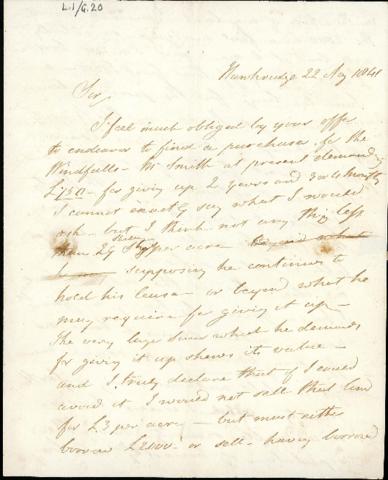 L.1/G.20
22 Aug 1841
Sir,
I feel much obliged by your offer
to endeavor to find a purchaser for the
Windfalls - Mr Smith at present demands
£750 - for giving up 2 years and 3 or 4 months
I cannot exactly say what I would
ask - but I think not any thing less
than per acre - beyond what
supposing he continues to
hold his lease - or beyond what he
may require for giving it up -
The very large sum which he demands
for giving it up shews its value -
and I truly declare that if I could
avoid it I would not sell that land
for £3 per acre - but must either
borrow £2000 - or sell - having borrowed